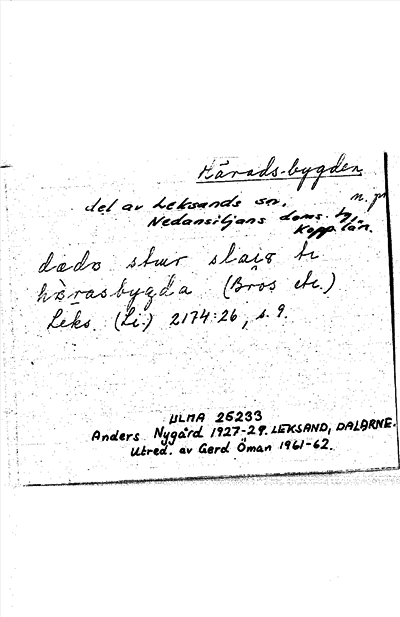 Härads-bygden
n. pr
del av Leksands sn.
Nedansiljans doms.
Kopp. län.
dædo stur slais ti
hærasbygda (Brös etc.)
Leks. (Li.) 2174:26, s. 9.
ULMA 26233
Anders Nygård 1927-29. LEKSAND, DALARNE.
Utred. av Gerd Öman 1961-62.